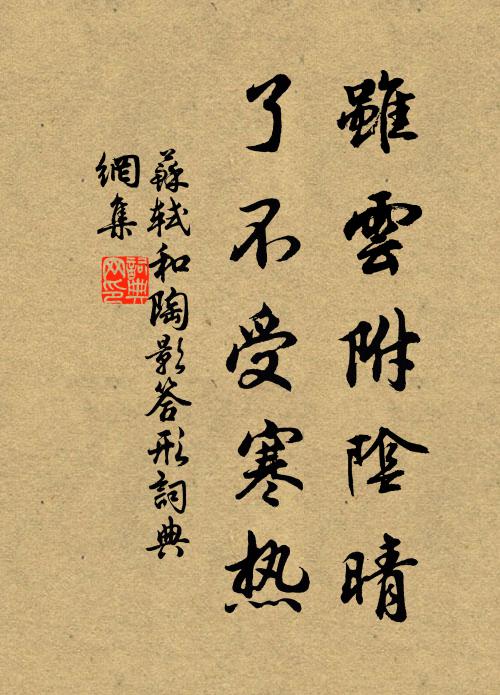 雖雲附陰晴
了不受寒热
蘇軾和陶影答形詞典
網集
詞典
网印